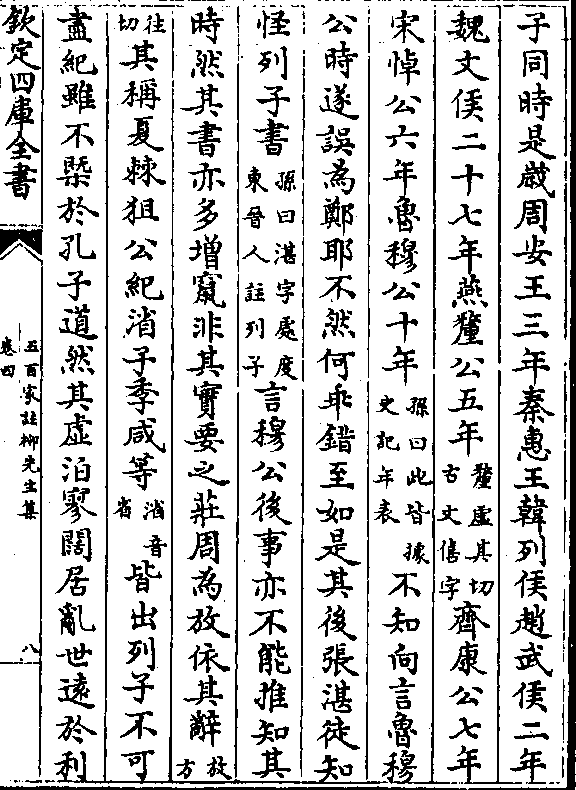 子同時是歲周安王三年秦惠王韓列侯趙武侯二年
魏文侯二十七年燕釐公五年釐虛其切古文僖字齊康公七年
宋悼公六年魯穆公十年孫曰此皆據史記年表不知向言魯穆
公時遂誤為鄭耶不然何乖錯至如是其後張湛徒知
怪列子書孫曰湛字處度東晉人註列子言穆公後事亦不能推知其
時然其書亦多增竄非其實要之莊周為放依其辭放方
往切其稱夏棘狙公紀渻子季咸等渻音省皆出列子不可
盡紀雖不槩於孔子道然其虛泊寥闊居亂世遠於利
欽定四庫全書
五百家註柳先生集
卷四
八